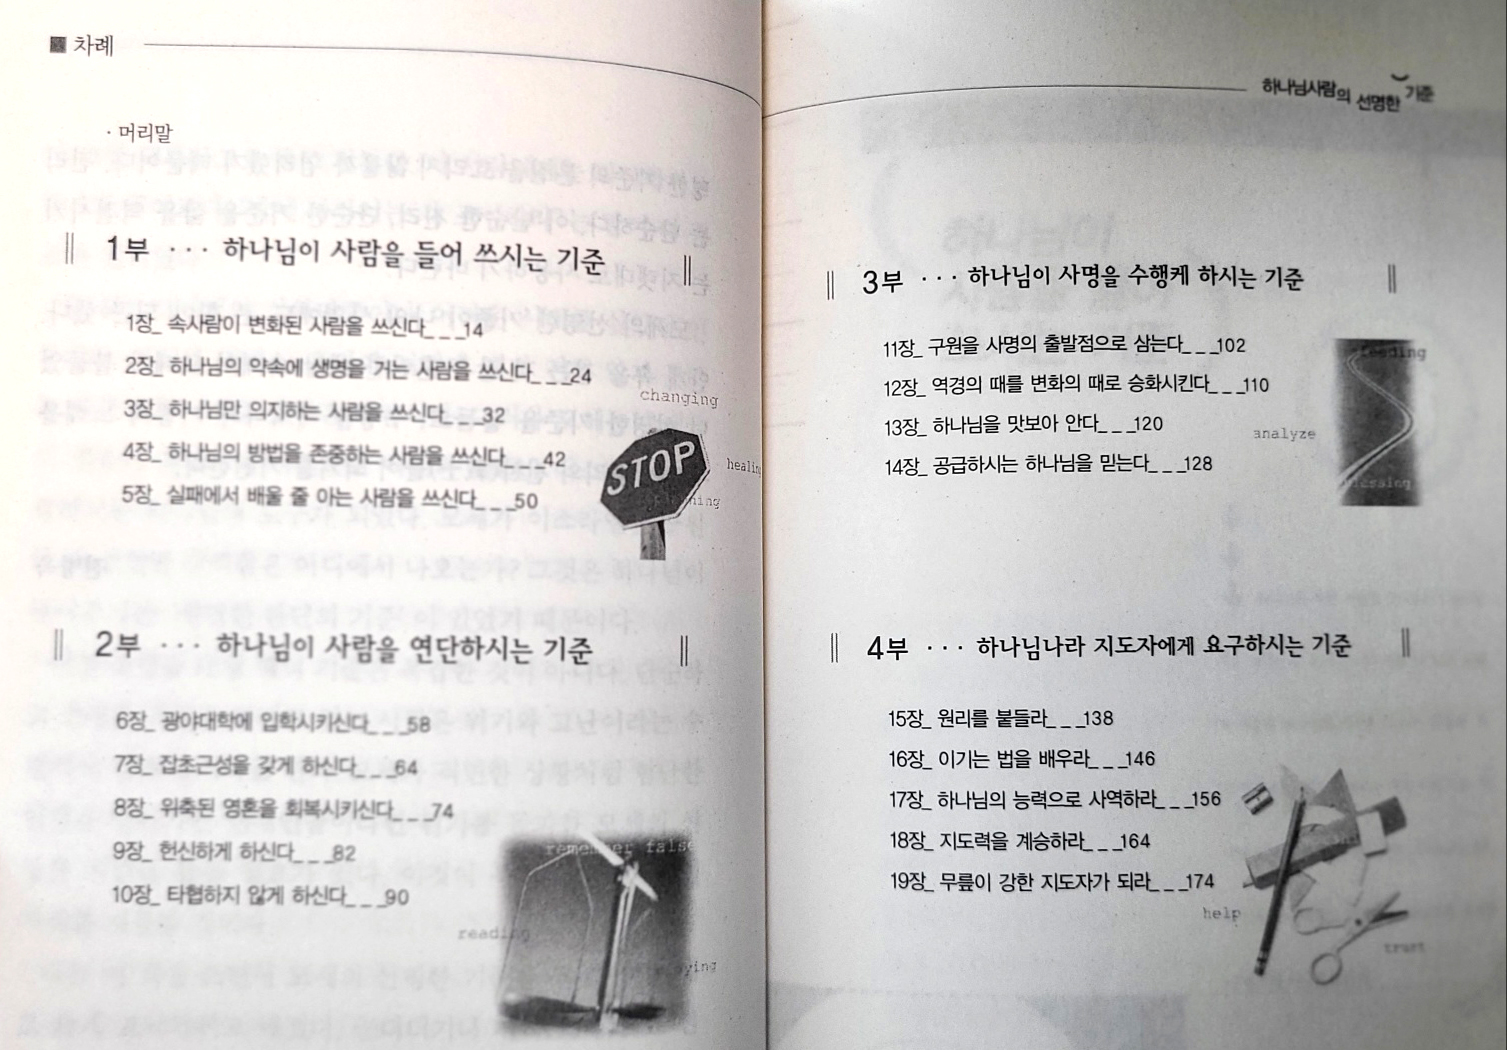 차례
· 머리말
1부 ··· 하나님이 사람을 들어 쓰시는 기준
1장_ 속사람이 변화된 사람을 쓰신다___14
2장_ 하나님의 약속에 생명을 거는 사람을 쓰신다___24
3장_ 하나님만 의지하는 사람을 쓰신다___32
4장_ 하나님의 방법을 존중하는 사람을 쓰신다___42
5장_ 실패에서 배울 줄 아는 사람을 쓰신다___50
changing
STOP
2부 ··· 하나님이 사람을 연단하시는 기준
6장_ 광야대학에 입학시키신다___58
7장_ 잡초근성을 갖게 하신다___64
8장_ 위축된 영혼을 회복시키신다___74
9장_ 헌신하게 하신다___82
10장_ 타협하지 않게 하신다___90
remember false
reading
하나님사람의 선명한 기준
3부 ··· 하나님이 사명을 수행케 하시는 기준
11장_ 구원을 사명의 출발점으로 삼는다___102
12장_ 역경의 때를 변화의 때로 승화시킨다___110
13장_ 하나님을 맛보아 안다___120
14장_ 공급하시는 하나님을 믿는다___128
analyze
4부 ··· 하나님나라 지도자에게 요구하시는 기준
15장_ 원리를 붙들라___138
16장_ 이기는 법을 배우라___146
17장_ 하나님의 능력으로 사역하라___156
18장_ 지도력을 계승하라___164
19장_ 무릎이 강한 지도자가 되라___174
help
trust